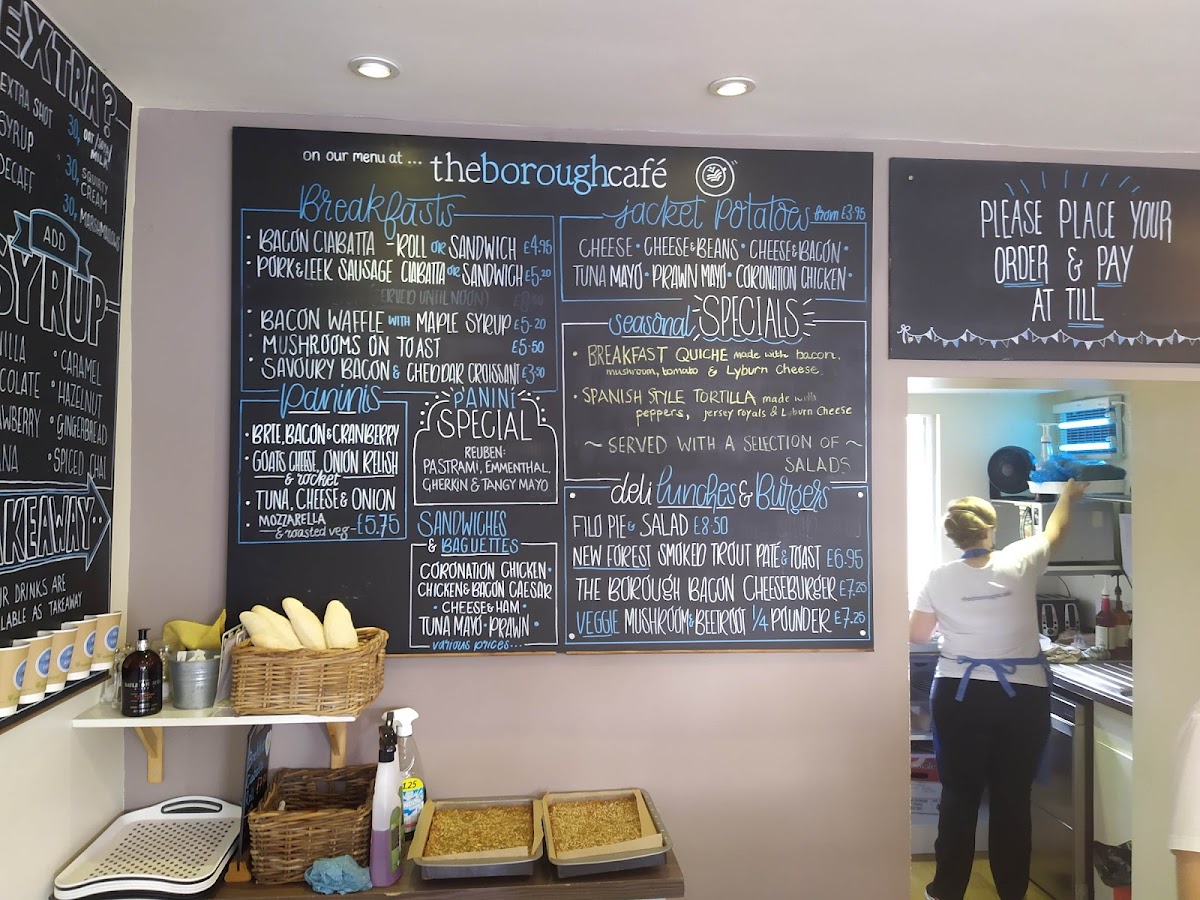 EXTRA?
EXTRA SHOT 30p
SYRUP
DECAFF 30p
30p
SQUIRTY
CREAM
MARSHMALLOWS
ADD
SYRUP
CARAMEL
HAZELNUT
GINGERBREAD
SPICED CHAI
on our menu at ... theboroughcafé
Breakfasts
• BACON CIABATTA - ROLL OR SANDWICH £4.95
• PORK & LEEK SAUSAGE CIABATTA OR SANDWICH £5.20
SERVED UNTIL NOON
BACON WAFFLE WITH MAPLE SYRUP £5.20
MUSHROOMS ON TOAST £5.50
• SAVOURY BACON & CHEDDAR CROISSANT £3.50
Paninis
• BRIE, BACON & CRANBERRY
• GOATS CHEESE, ONION RELISH
& rocket
• TUNA, CHEESE & ONION
• MOZZARELLA
& roasted veg - £5.75
PANINI
SPECIAL
REUBEN:
PASTRAMI, EMMENTHAL,
GHERKIN & TANGY MAYO
SANDWICHES
& BAGUETTES
CORONATION CHICKEN •
CHICKEN & BACON CAESAR
• CHEESE & HAM •
TUNA MAYO • PRAWN •
various prices...
jacket potatoes from £3.95
CHEESE • CHEESE & BEANS • CHEESE & BACON •
TUNA MAYO • PRAWN MAYO • CORONATION CHICKEN •
seasonal SPECIALS
• BREAKFAST QUICHE made with bacon,
mushroom, tomato & Lyburn Cheese
• SPANISH STYLE TORTILLA made with
peppers, jersey royals & Lyburn Cheese
~ SERVED WITH A SELECTION OF ~
SALADS
deli lunches & Burgers
FILO PIE & SALAD £8.50
NEW FOREST SMOKED TROUT PATÉ & TOAST £6.95
THE BOROUGH BACON CHEESEBURGER £7.25
VEGGIE MUSHROOM & BEETROOT 1/4 POUNDER £7.25
PLEASE PLACE YOUR
ORDER & PAY
AT TILL